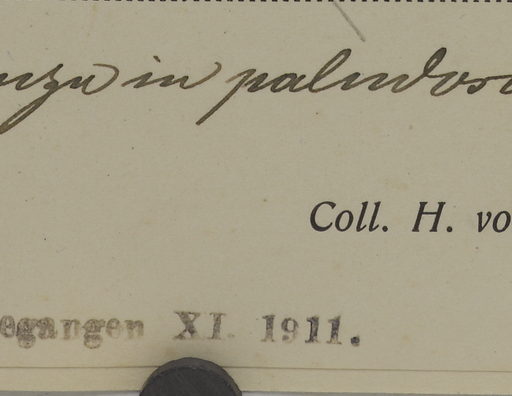 in paludos
Coll. H. vo
egangen XI. 1911.